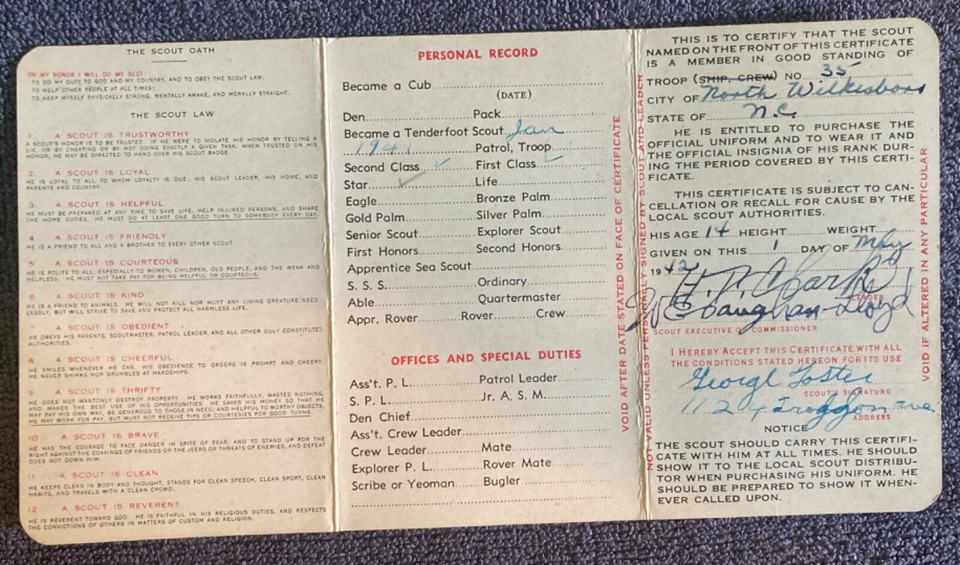 THE SCOUT OATH
ON MY HONOR I WILL DO MY BEST
TO DO MY DUTY TO GOD AND MY COUNTRY, AND TO OBEY THE SCOUT LAW;
TO HELP OTHER PEOPLE AT ALL TIMES;
TO KEEP MYSELF PHYSICALLY STRONG, MENTALLY AWAKE, AND MORALLY STRAIGHT.
THE SCOUT LAW
1. A SCOUT IS TRUSTWORTHY
A SCOUT'S HONOR IS TO BE TRUSTED. IF HE WERE TO VIOLATE HIS HONOR BY TELLING A
LIE, OR BY CHEATING OR BY NOT DOING EXACTLY A GIVEN TASK, WHEN TRUSTED ON HIS
HONOR, HE MAY BE DIRECTED TO HAND OVER HIS SCOUT BADGE.
2. A SCOUT IS LOYAL
HE IS LOYAL TO ALL TO WHOM LOYALTY IS DUE, HIS SCOUT LEADER, HIS HOME, AND
PARENTS AND COUNTRY.
3. A SCOUT IS HELPFUL
HE MUST BE PREPARED AT ANY TIME TO SAVE LIFE, HELP INJURED PERSONS, AND SHARE
THE HOME DUTIES. HE MUST DO AT LEAST ONE GOOD TURN TO SOMEBODY EVERY DAY.
4. A SCOUT IS FRIENDLY
HE IS A FRIEND TO ALL AND A BROTHER TO EVERY OTHER SCOUT.
5. A SCOUT IS COURTEOUS
HE IS POLITE TO ALL, ESPECIALLY TO WOMEN, CHILDREN, OLD PEOPLE, AND THE WEAK AND
HELPLESS. HE MUST NOT TAKE PAY FOR BEING HELPFUL OR COURTEOUS.
6. A SCOUT IS KIND
HE IS A FRIEND TO ANIMALS. HE WILL NOT KILL NOR HURT ANY LIVING CREATURE NEED
LESSLY, BUT WILL STRIVE TO SAVE AND PROTECT ALL HARMLESS LIFE.
7. A SCOUT IS OBEDIENT
HE OBEYS HIS PARENTS, SCOUTMASTER, PATROL LEADER, AND ALL OTHER DULY CONSTITUTED
AUTHORITIES.
8. A SCOUT IS CHEERFUL
HE SMILES WHENEVER HE CAN. HIS OBEDIENCE TO ORDERS IS PROMPT AND CHEERY.
HE NEVER SHIRKS NOR GRUMBLES AT HARDSHIPS.
9. A SCOUT IS THRIFTY
HE DOES NOT WANTONLY DESTROY PROPERTY. HE WORKS FAITHFULLY, WASTES NOTHING,
AND MAKES THE BEST USE OF HIS OPPORTUNITIES. HE SAVES HIS MONEY SO THAT HE
MAY PAY HIS OWN WAY, BE GENEROUS TO THOSE IN NEED, AND HELPFUL TO WORTHY OBJECTS.
HE MAY WORK FOR PAY, BUT MUST NOT RECEIVE TIPS OR COURTESIES FOR GOOD TURNS.
10. A SCOUT IS BRAVE
HE HAS THE COURAGE TO FACE DANGER IN SPITE OF FEAR, AND TO STAND UP FOR THE
RIGHT AGAINST THE COAXINGS OF FRIENDS OR THE JEERS OR THREATS OF ENEMIES, AND DEFEAT
DOES NOT DOWN HIM.
11. A SCOUT IS CLEAN
HE KEEPS CLEAN IN BODY AND THOUGHT, STANDS FOR CLEAN SPEECH, CLEAN SPORT, CLEAN
HABITS, AND TRAVELS WITH A CLEAN CROWD.
12. A SCOUT IS REVERENT
HE IS REVERENT TOWARD GOD. HE IS FAITHFUL IN HIS RELIGIOUS DUTIES, AND RESPECTS
THE CONVICTIONS OF OTHERS IN MATTERS OF CUSTOM AND RELIGION.
PERSONAL RECORD
Became a Cub
(DATE)
Den Pack
Became a Tenderfoot Scout Jan
1941 Patrol, Troop
Second Class ✓ First Class ✓
Star ✓ Life
Eagle Bronze Palm
Gold Palm Silver Palm
Senior Scout Explorer Scout
First Honors Second Honors
Apprentice Sea Scout
S. S. S. Ordinary
Able Quartermaster
Appr. Rover Rover Crew
OFFICES AND SPECIAL DUTIES
Ass't. P. L. Patrol Leader
S. P. L. Jr. A. S. M.
Den Chief
Ass't. Crew Leader
Crew Leader Mate
Explorer P. L. Rover Mate
Scribe or Yeoman Bugler
VOID AFTER DATE STATED ON FACE OF CERTIFICATE
NOT VALID UNLESS PERSONALLY SIGNED BY SCOUT AND LEADER
THIS IS TO CERTIFY THAT THE SCOUT
NAMED ON THE FRONT OF THIS CERTIFICATE
IS A MEMBER IN GOOD STANDING OF
TROOP (SHIP, CREW) NO. 35
CITY OF North Wilkesboro
STATE OF N.C.
HE IS ENTITLED TO PURCHASE THE
OFFICIAL UNIFORM AND TO WEAR IT AND
THE OFFICIAL INSIGNIA OF HIS RANK DUR-
ING THE PERIOD COVERED BY THIS CERTI-
FICATE.
THIS CERTIFICATE IS SUBJECT TO CAN-
CELLATION OR RECALL FOR CAUSE BY THE
LOCAL SCOUT AUTHORITIES.
HIS AGE 14 HEIGHT WEIGHT
GIVEN ON THIS 1 DAY OF May
1942
LEADER
SCOUT EXECUTIVE OR COMMISSIONER
I HEREBY ACCEPT THIS CERTIFICATE WITH ALL
THE CONDITIONS STATED HEREON FOR ITS USE
George Foster
SCOUT'S SIGNATURE
ADDRESS
NOTICE
THE SCOUT SHOULD CARRY THIS CERTIFI-
CATE WITH HIM AT ALL TIMES. HE SHOULD
SHOW IT TO THE LOCAL SCOUT DISTRIBU-
TOR WHEN PURCHASING HIS UNIFORM. HE
SHOULD BE PREPARED TO SHOW IT WHEN-
EVER CALLED UPON.
VOID IF ALTERED IN ANY PARTICULAR